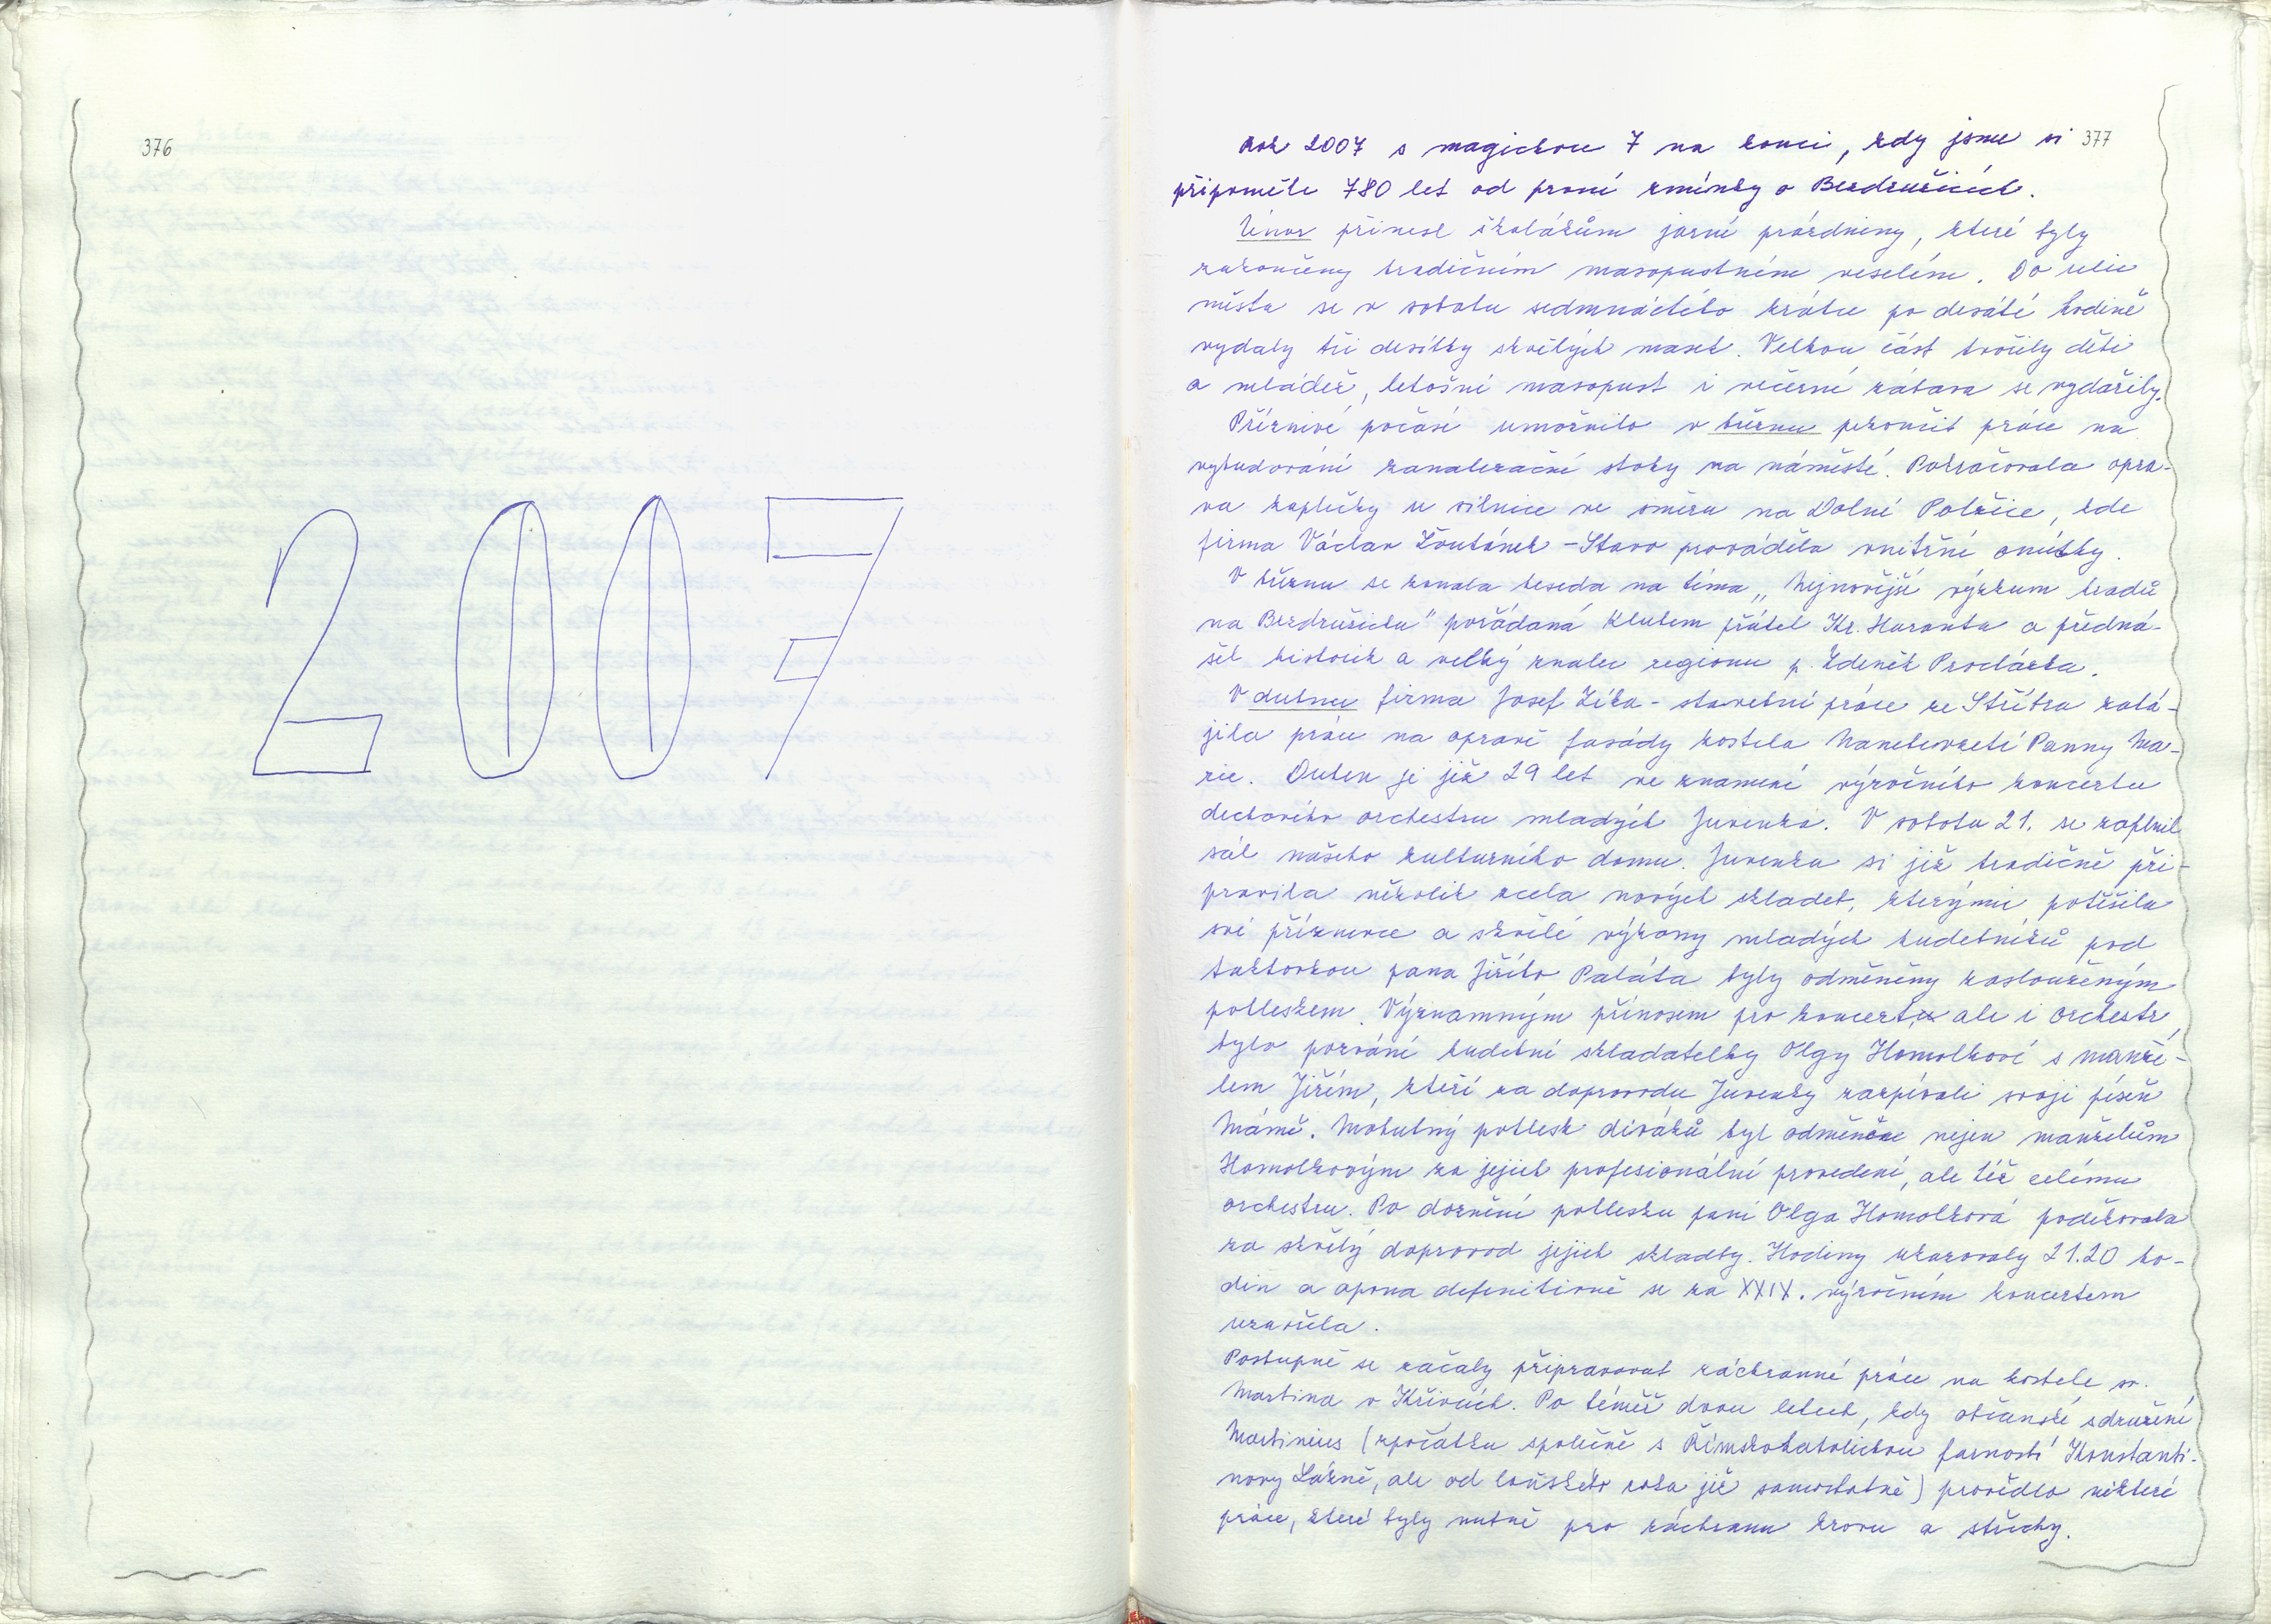 376
2007
377
Rok 2007 s magickou 7 na konci, kdy jsme si
připoměli 780 let od první zmínky o Bezdružicích.
Únor přinesl školákům jarní prázdniny, které byly
zakončeny tradičním masopustním veselím. Do ulic
města se v sobotu sedmnáctého krátce po desáté hodině
vydaly tři desítky skvělých masek. Velkou část tvořily děti
a mládež, letošní masopust i večerní zábava se vydařily.
Příznivé počasí umožnilo v březnu pokončit práce na
vybudování kanalizační stoky na náměstí. Pokračovala opra-
va kapličky u silnice ve směru na Dolní Polžice, kde
firma Václav Žoutánek - Stavo prováděla vnitřní omítky.
V březnu se konala beseda na téma „Nejnovější výzkum hradů
na Bezdružicku" pořádaná Klubem přátel Kr. Haranta a předná-
šel historik a velký znalec regionu p. Zdeněk Procházka.
V dubnu firma Josef Zíka - stavební práce ze Stříbra zahá-
jila práce na opravě fasády kostela Nanebevzetí Panny Ma-
rie. Duben je již 29 let ve znamení výročního koncertu
dechového orchestru mladých Juvenka. V sobotu 21. se zaplnil
sál našeho kulturního domu. Juvenka si již tradičně při-
pravila několik zcela nových skladeb, kterými potěšila
své příznivce a skvělé výkony mladých hudebníků pod
taktovkou pana Jiřího Paláta byly odměněny zaslouženým
potleskem. Významným přínosem pro koncert, ale i orchestr,
bylo pozvání hudební skladatelky Olgy Homolkové s manže-
lem Jiřím, kteří za doprovodu Juvenky zazpívali svoji píseň
Mámě. Mohutný potlesk diváků byl odměnou nejen manželům
Homolkovým za jejich profesionální provedení, ale též celému
orchestru. Po doznění potlesku paní Olga Homolková poděkovala
za skvělý doprovod jejich skladby. Hodiny ukazovaly 21.20 ho-
din a opona definitivně se za XXIX. výročním koncertem
uzavřela.
Postupně se začaly připravovat záchranné práce na kostele sv.
Martina v Křivcích. Po téměř dvou letech, kdy občanské sdružení
Martinius (zpočátku společně s Římskokatolickou farností Konstanti-
novy Lázně, ale od loňského roku již samostatně) provědlo některé
práce, které byly nutné pro záchranu krovu a střechy.